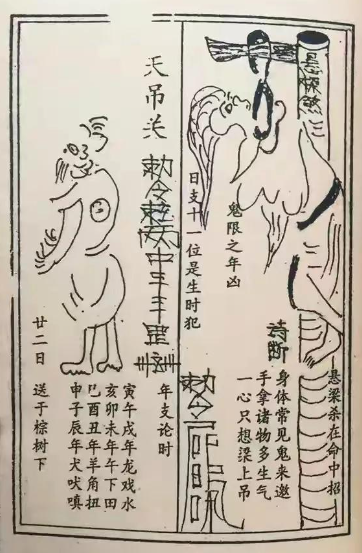 悬梁煞
诗断
悬梁杀在命中招
身体常见鬼来邀
手拿诸物多生气
一心只想梁上吊
鬼限之年凶
日支十一位是生时犯
勅令
天吊关
勅令
年支论时
寅午戌年龙戏水
亥卯未年午下田
巳酉丑年羊角扭
申子辰年犬吠嗔
廿二日 送于棕树下